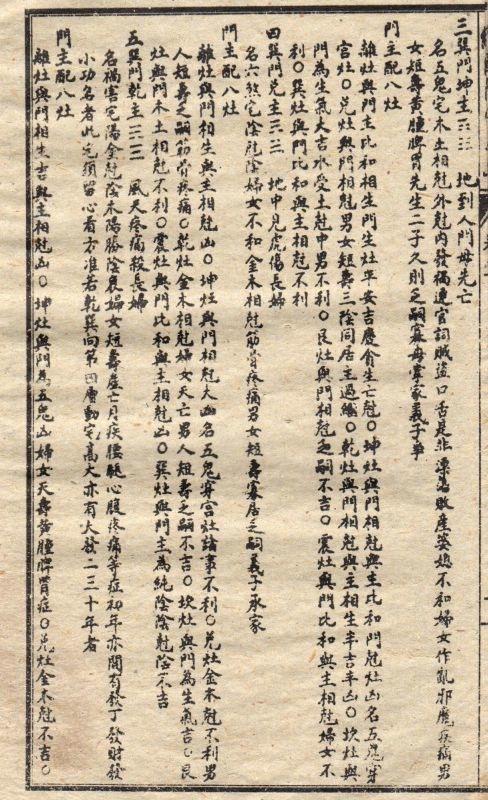 三巽門坤主 地到人門母先亡
名五鬼宅木土相尅外尅內發禍遭官詞賊盜口舌是非漂蕩敗產婆媳不和婦女作亂邪魔疾病男
女短壽黃腫脾胃先生二子久則乏嗣寡母掌家義子爭
門主配八灶
離灶與門主比和相生門生灶平安吉慶貪生亡尅〇坤灶與門相尅與主比和門尅灶凶名五鬼穿
宮灶〇兌灶與門相尅男女短壽三陰同居主過繼〇乾灶與門相尅與主相生半吉半凶〇坎灶與
門為生氣大吉水受土尅中男不利〇艮灶與門相尅乏嗣不吉〇震灶與門比和與主相尅婦女不
利〇巽灶與門比和與主相尅不利
四巽門兌主 地中見虎傷長婦
名六煞宅陰尅陰婦女不和金木相尅筋骨疼痛男女短壽寡居乏嗣義子承家
門主配八灶
離灶與門相生與主相尅凶〇坤灶與門相尅大凶名五鬼穿宮灶諸事不利〇兌灶金木尅不利男
人短壽乏嗣筋骨疼痛〇乾灶金木相尅婦女夭亡男人短壽乏嗣不吉〇坎灶與門為生氣吉〇艮
灶與門木土相尅不利〇震灶與門比和與主相尅凶〇巽灶與門主為純陰陰尅陰不吉
五巽門乾主 風天疼痛殺長婦
名禍害宅陽金尅陰木陽勝陰衰婦女短壽產亡月疾腰腿心腹疼痛等症初年亦間有發丁發財發
小功名者此宅須留心看方准若乾巽向第四層動宅高大亦有大發二三十年者
門主配八灶
離灶與門相生吉與主相尅凶〇坤灶與門為五鬼凶婦女夭壽黃腫脾胃症〇兌灶金木尅不吉〇